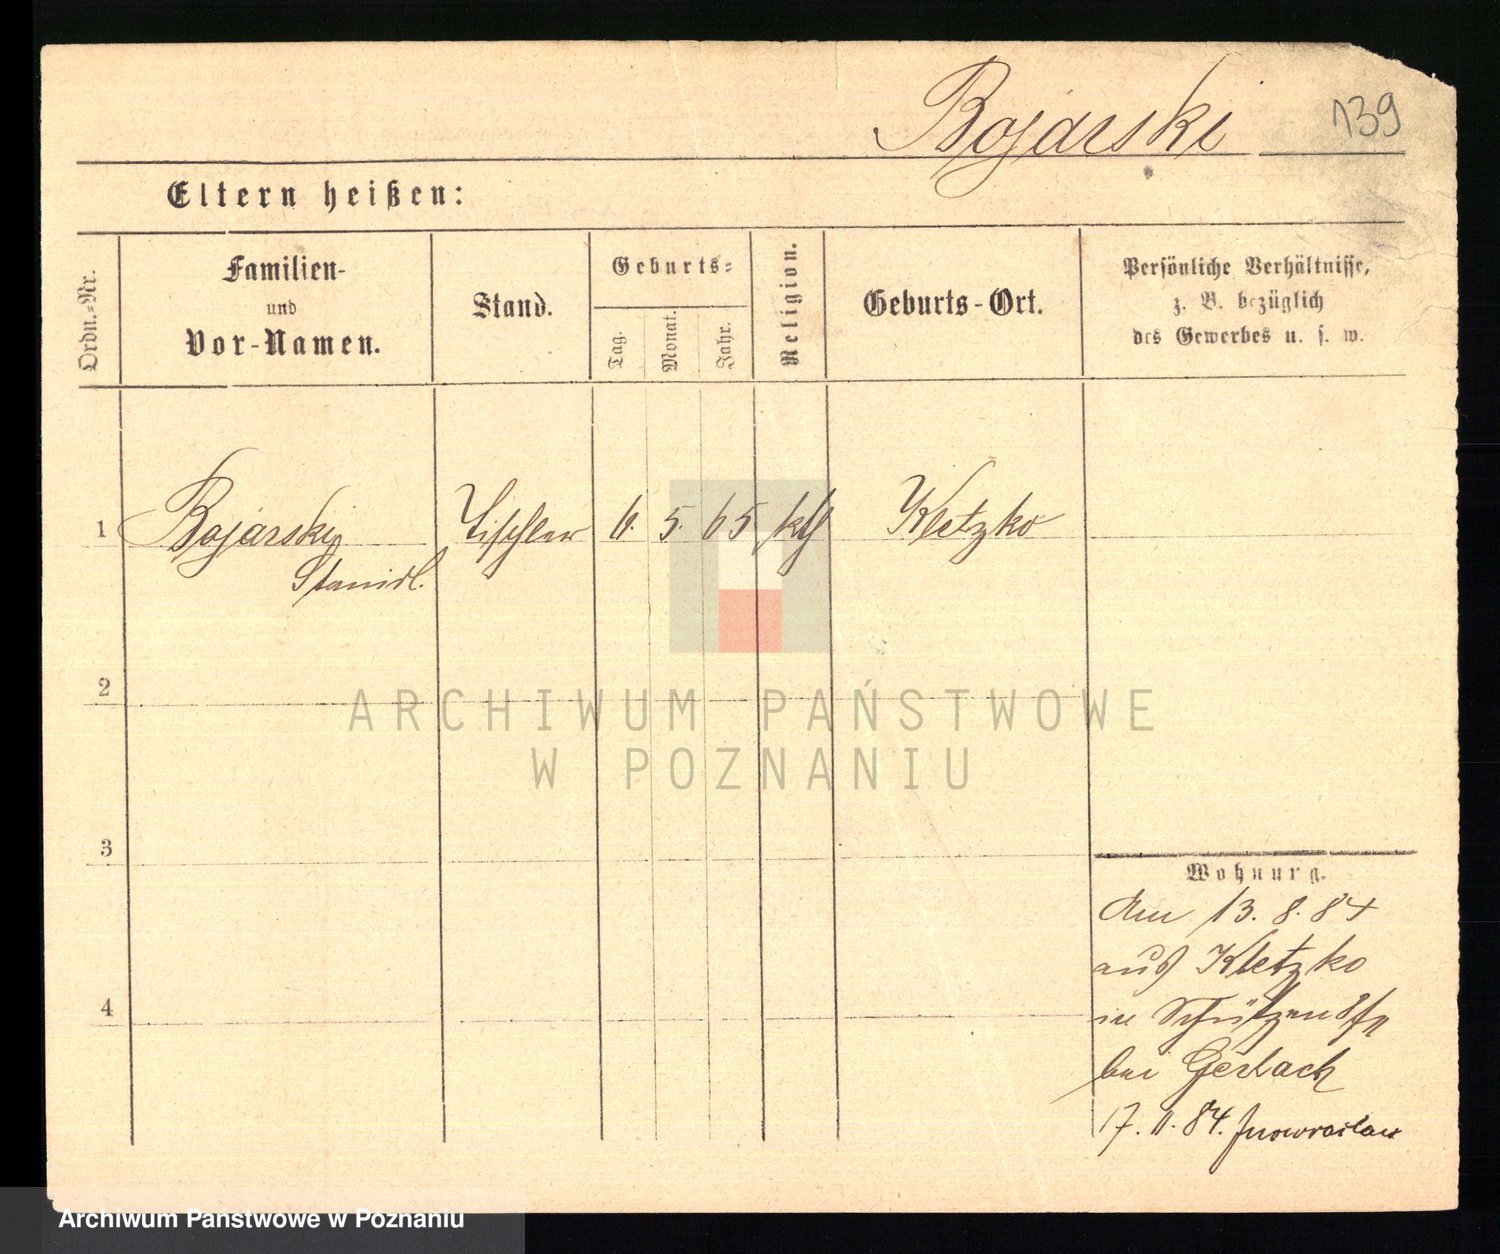 Bojarski 139
Eltern heißen:
Ordn.-Nr.
Familien-
und
Vor-Namen.
Stand.
Geburts-
Tag.
Monat.
Jahr.
Religion.
Geburts-Ort.
Persönliche Verhältnisse,
z. B. bezüglich
des Gewerbes u. s. w.
1 Bojarski Tischler 11. 5. 65 kth Kletzko
Stanisl.
2
ARCHIWUM PAŃSTWOWE
W POZNANIU
3
Wohnung.
Am 13. 8. 84
aus Kletzko
4
in Schützenstr
bei Gerlach
17. 11. 84. Inowraclaw
Archiwum Państwowe w Poznaniu